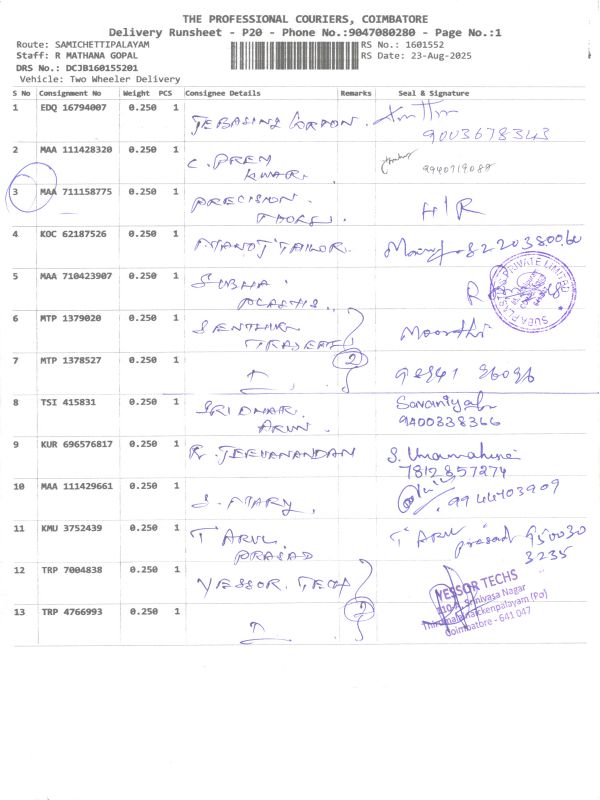 THE PROFESSIONAL COURIERS, COIMBATORE
Delivery Runsheet - P20 - Phone No.:9047080280 - Page No.:1
Route: SAMICHETTIPALAYAM RS No.: 1601552
Staff: R MATHANA GOPAL RS Date: 23-Aug-2025
DRS No.: DCJB160155201
Vehicle: Two Wheeler Delivery
S No Consignment No Weight PCS Consignee Details Remarks Seal & Signature
1 EDQ 16794007 0.250 1
JEBASING GORDON.
9003678343
2 MAA 111428320 0.250 1
C. PREM
KUMAR. 9940719088
3 MAA 711158775 0.250 1
PRECISION. H/R
4 KOC 62187526 0.250 1
MANOJ TAILOR.
5 MAA 710423907 0.250 1
SUBHA.
6 MTP 1379020 0.250 1
SENTHIL Moorthi
7 MTP 1378527 0.250 1 2
8 TSI 415831 0.250 1
SRIDHAR.
ARUN. 9400338366
9 KUR 696576817 0.250 1
R. JEEVANANDAN S. Umamaheswari
7812857274
10 MAA 111429661 0.250 1
S. MARY. 9944403909
11 KMU 3752439 0.250 1
T ARUL T ARUL prasad 950030
PRASAD 3235
12 TRP 7004838 0.250 1
YESSOR. TECH
13 TRP 4766993 0.250 1 2
YESSOR TECHS
Srinivasa Nagar
Thirumalainaickenpalayam (Po)
Coimbatore - 641 047